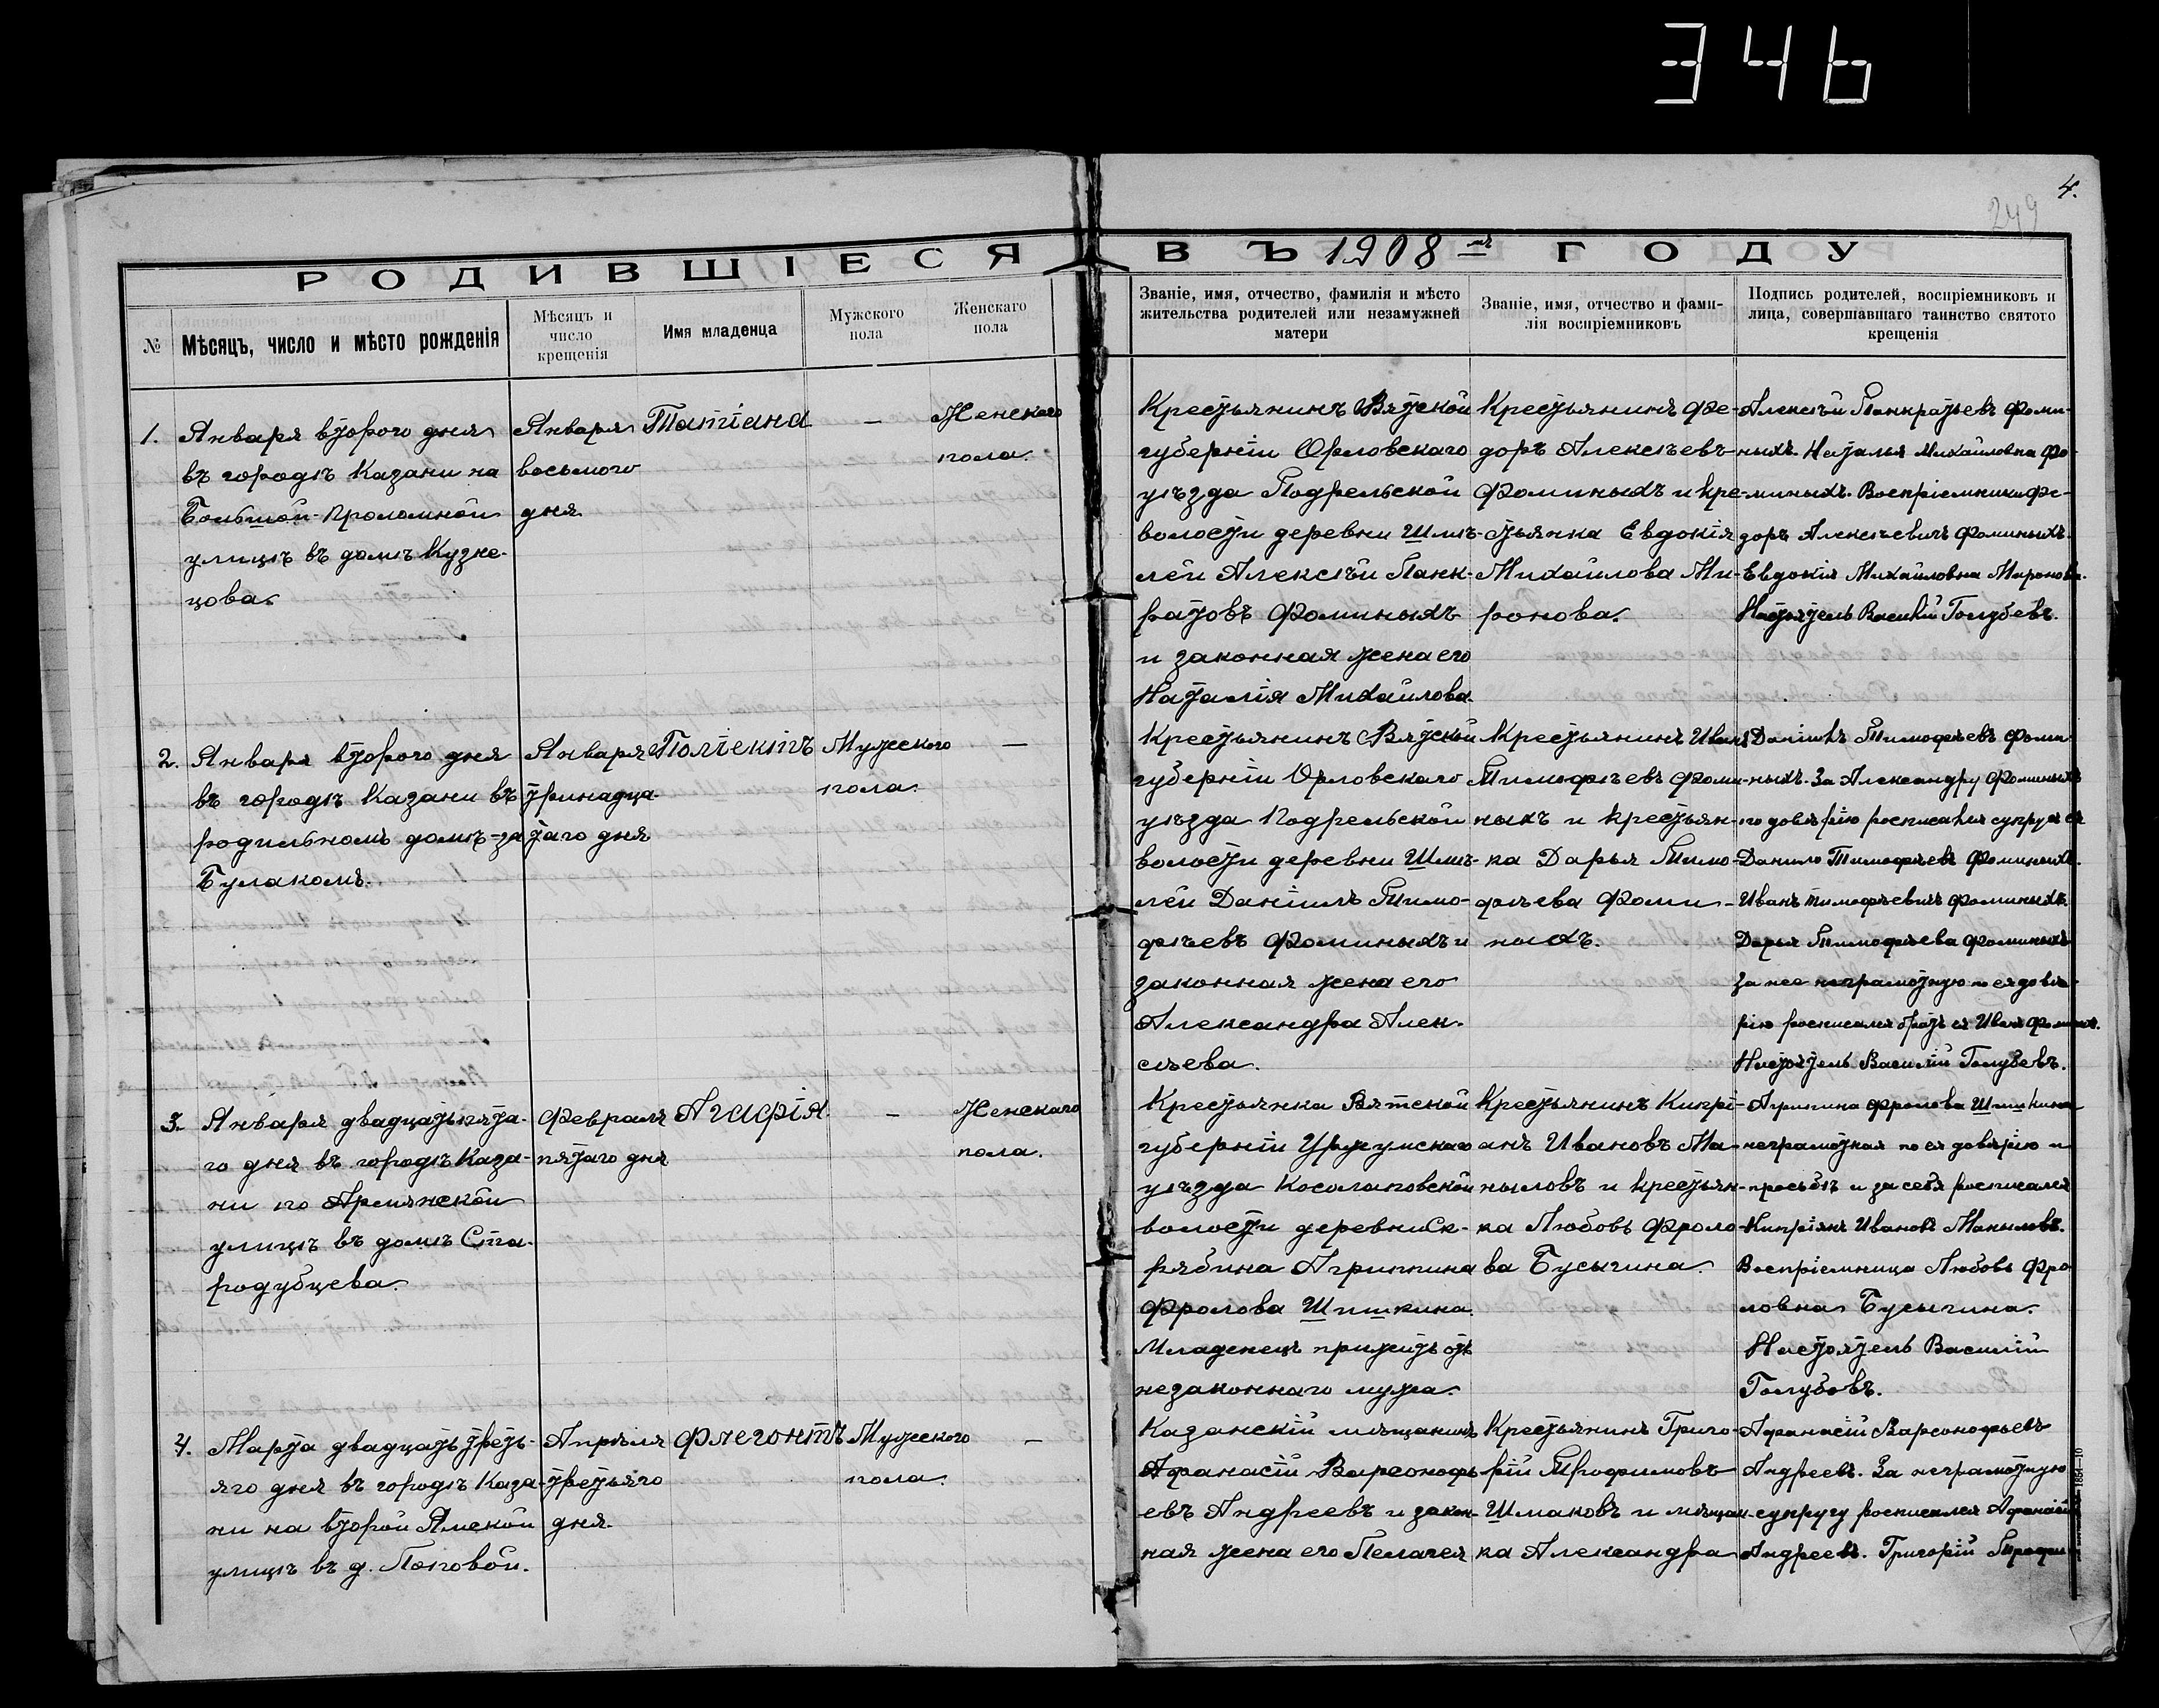 346
4.
249
РОДИВШІЕСЯ ВЪ 1908 мъ ГОДУ
№
Мѣсяцъ, число и мѣсто рожденія
Мѣсяцъ и
число
крещенія
Имя младенца
Мужского
пола
Женскаго
пола
Званіе, имя, отчество, фамилія и мѣсто
жительства родителей или незамужней
матери
Званіе, имя, отчество и фами-
лія воспріемниковъ
Подпись родителей, воспріемниковъ и
лица, совершавшаго таинство святого
крещенія
1.
Января второго дня
въ городѣ Казани на
Большой-Проломной
улицѣ въ домѣ Кузне-
цова.
Января
восьмого
дня
Татіана
—
Женскаго
пола.
Крестьянинъ Вятской
губерніи Орловскаго
уѣзда Подрельской
волости деревни Шмѣ-
лей Алексѣй Панк-
ратовъ Фоминыхъ
и законная жена его
Наталія Михайлова
Крестьянинъ Фе-
доръ Алексѣевъ
Фоминыхъ и кре-
стьянка Евдокія
Михайлова Ми-
ронова.
Алексѣй Панкратьевъ Фоми-
ныхъ. Наталья Михайловна Фо-
миныхъ. Воспріемники Фе-
доръ Алексѣевичъ Фоминыхъ.
Евдокія Михайловна Миронова.
Настоятель Василій Голубевъ.
2.
Января второго дня
въ городѣ Казани въ
родильномъ домѣ-за
Булакомъ.
Января
тринадца-
таго дня
Поліектъ
Мужского
пола
—
Крестьянинъ Вятской
губерніи Орловскаго
уѣзда Подрельской
волости деревни Шмѣ-
лей Даніилъ Тимо-
фѣевъ Фоминыхъ и
законная жена его
Александра Алек-
сѣева.
Крестьянинъ Иванъ
Тимофѣевъ Фоми-
ныхъ и крестьян-
ка Дарья Тимо-
фѣева Фоми-
ныхъ.
Даніилъ Тимофѣевъ Фоми-
ныхъ. За Александру Фоминыхъ
по довѣрію росписался супругъ ея
Данило Тимофѣевъ Фоминыхъ.
Иванъ Тимофѣевичъ Фоминыхъ.
Дарья Тимофѣева Фоминыхъ
за нее неграмотную по ея довѣ-
рію росписался братъ ея Иванъ Фоминыхъ.
Настоятель Василій Голубевъ.
3.
Января двадцать пята-
го дня въ городѣ Каза-
ни по Армянской
улицѣ въ домѣ Ста-
родубцева.
Февраля
пятаго дня
Агафія
—
Женскаго
пола.
Крестьянка Вятской
губерніи Уржумскаго
уѣзда Косолаповской
волости деревни Ск-
рябина Агриппина
Фролова Шишкина.
Младенецъ прижитъ отъ
незаконнаго мужа.
Крестьянинъ Кипрі-
анъ Ивановъ Ма-
ныловъ и крестьян-
ка Любовь Фроло-
ва Бусыгина.
Агрипина Фролова Шишкина
неграмотная по ея довѣрію и
просьбѣ и за себя росписался
Кипріянъ Ивановъ Маныловъ.
Воспріемница Любовь Фро
ловна Бусыгина.
Настоятель Василій
Голубовъ.
4.
Марта двадцать треть-
яго дня въ городѣ Каза-
ни на второй Ямской
улицѣ въ д. Поповой.
Апрѣля
третьяго
дня.
Флегонтъ
Мужского
пола.
—
Казанскій мѣщанинъ
Афанасій Варсонофь
евъ Андреевъ и закон-
ная жена его Пелагея
Крестьянинъ Григо-
рій Трофимовъ
Шмаковъ и мѣщан-
ка Александра
Афанасій Варсонофьевъ
Андреевъ. За неграмотную
супругу росписался Афанасій
Андреевъ. Григорій Трофи